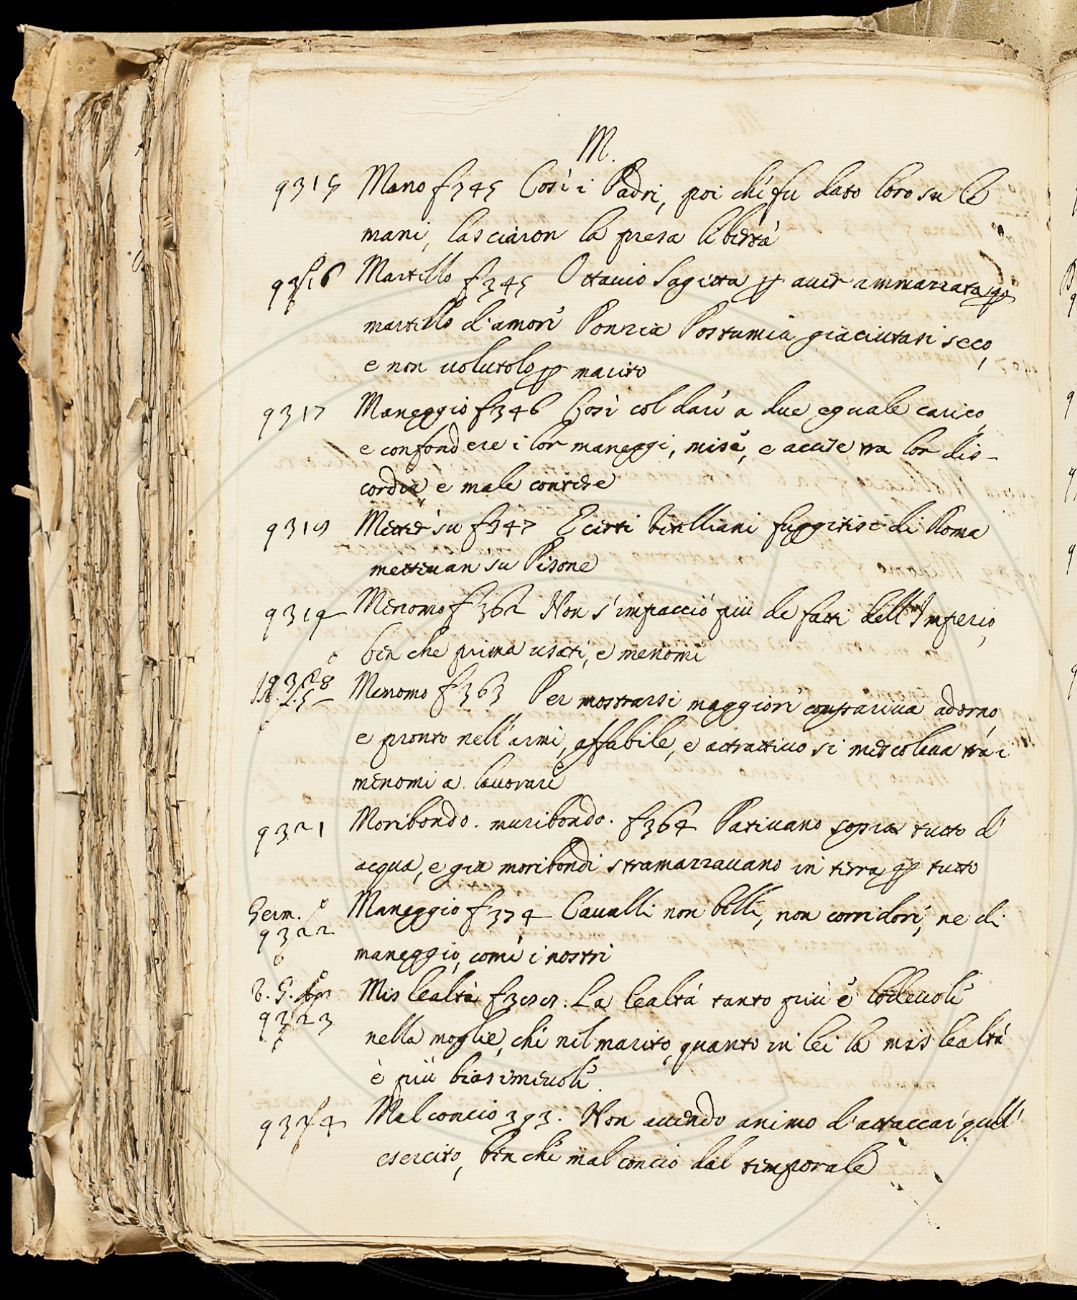 M.
9315 Mano f 345 Così i Padri, poi che fu dato loro su le
mani, lasciaron la presa libertà
9316 Martello f 345 Ottavio Sagitta p aver ammazzata p
martello d'amore Ponzia Postumia giaciutasi seco,
e non volutolo p marito
9317 Maneggio f 346 Così col dare a due eguale carico,
e confondere i lor maneggi, mise, e accese tra lor dis-
cordia, e male contese
9318 Metter su f 347 E certi Vitelliani fuggitisi di Roma
mettevan su Pisone
9319 Menomo f 362 Non s'impacciò più de fatti dell'Imperio,
ben che prima usati, e menomi
Menomo f 363 Per mostrarsi maggiore compariva adorno,
e pronto nell'armi, affabile, e attrattivo si mescolava trà i
menomi a lavorare
9321 Moribondo. muribondo. f 364 Pativano sopra tutto d
acqua, e gia moribondi stramazzavano in terra p tutto
Germ. Maneggio f 374 Cavalli non belli, non corridori, ne di
9322 maneggio, come i nostri
Mislealtà La lealtà tanto più è lodevole
9323 nella moglie, che nel marito, quanto in lei la mislealtà
è più biasimevole
9324 Malconcio 393. Non avendo animo d'attaccar quell'
esercito, benche malconcio dal temporale